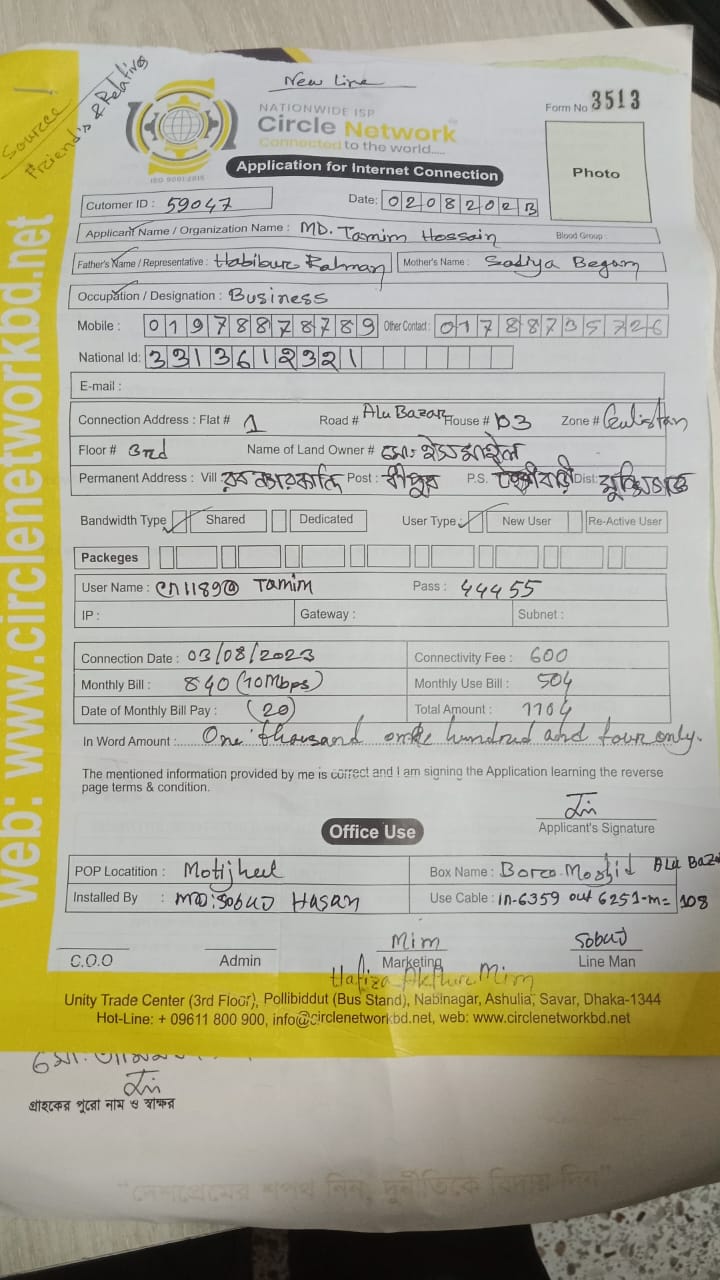 New Line
Source !
Friend's & Relatives
NATIONWIDE ISP
Circle Network
Connected to the world.....
ISO 9001:2015
Form No 3513
Photo
Application for Internet Connection
Cutomer ID : 59047
Date: 02082023
Applicant Name / Organization Name : MD. Tamim Hossain
Blood Group :
Father's Name / Representative : Habibur Rahman
Mother's Name : Sadiya Begom
Occupation / Designation : Business
Mobile : 01978878789
Other Contact : 01788735726
National Id: 3313612321
E-mail :
Connection Address : Flat # 1 Road # Alu Bazar House # 103 Zone # Gulistan
Floor # 3rd Name of Land Owner # মো:
Permanent Address : Vill Post : P.S. Dist:
Bandwidth Type Shared Dedicated User Type New User Re-Active User
Packeges
User Name : Tamim Pass : 44455
IP : Gateway : Subnet :
Connection Date : 03/08/2023 Connectivity Fee : 600
Monthly Bill : 840 (10Mbps) Monthly Use Bill : 504
Date of Monthly Bill Pay : (20) Total Amount : 1104
In Word Amount : One thousand one hundred and four only.
The mentioned information provided by me is correct and I am signing the Application learning the reverse
page terms & condition.
Applicant's Signature
Office Use
POP Locatition : Motijheel Box Name : Boro Mosjid Alu Baza
Installed By : Hasan Use Cable : in-6359 out 6251-m= 108
Mim Sobuj
C.O.O Admin Marketing Line Man
Hafiza Akthure Mim
Unity Trade Center (3rd Floor), Pollibiddut (Bus Stand), Nabinagar, Ashulia, Savar, Dhaka-1344
Hot-Line: + 09611 800 900, info@circlenetworkbd.net, web: www.circlenetworkbd.net
web: www.circlenetworkbd.net
গ্রাহকের পুরো নাম ও স্বাক্ষর
"দেশপ্রেমের শপথ নিন, দুর্নীতিকে বিদায় দিন"